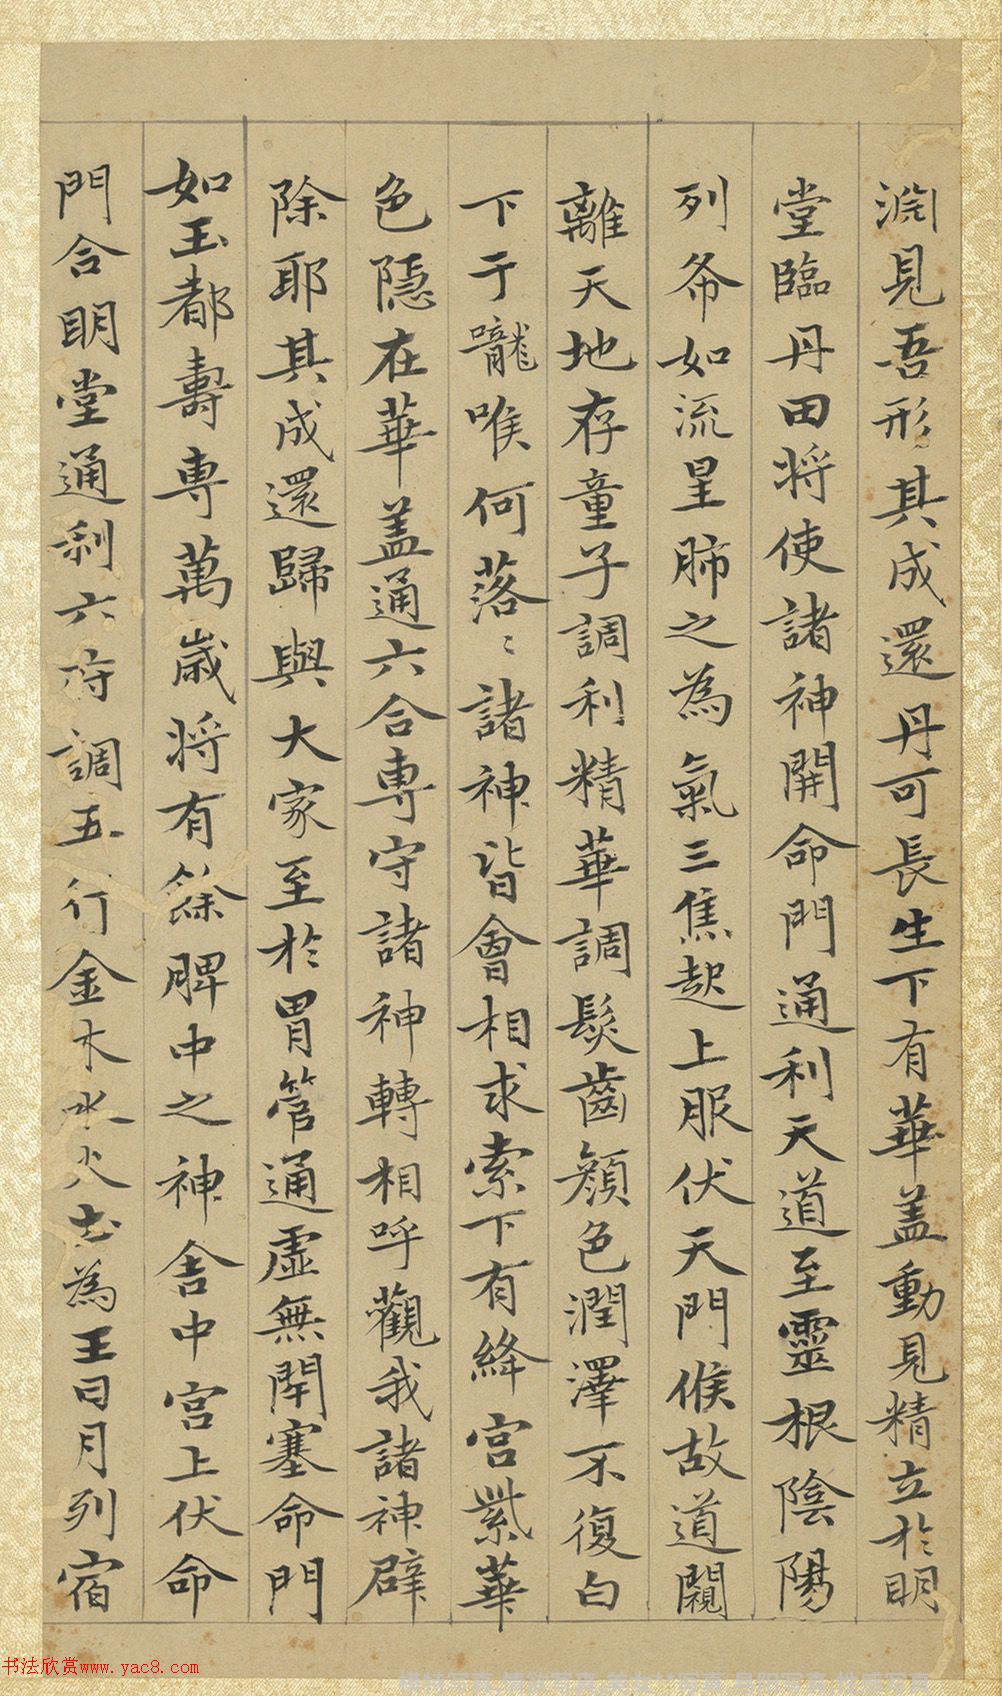 淵見吾形其成還丹可長生下有華盖動見精立於明
堂臨丹田将使諸神開命門通利天道至靈根陰陽
列布如流星肺之為氣三焦起上服伏天門候故道闚
離天地存童子調利精華調髮齒顏色潤澤不復白
下于嚨喉何落〻諸神皆會相求索下有絳宮紫華
色隱在華盖通六合專守諸神轉相呼觀我諸神辟
除耶其成還歸與大家至於胃管通虛無閉塞命門
如玉都壽專萬歲将有餘脾中之神舍中宮上伏命
門合明堂通利六府調五行金木水火土為王日月列宿
书法欣赏www.yac8.com